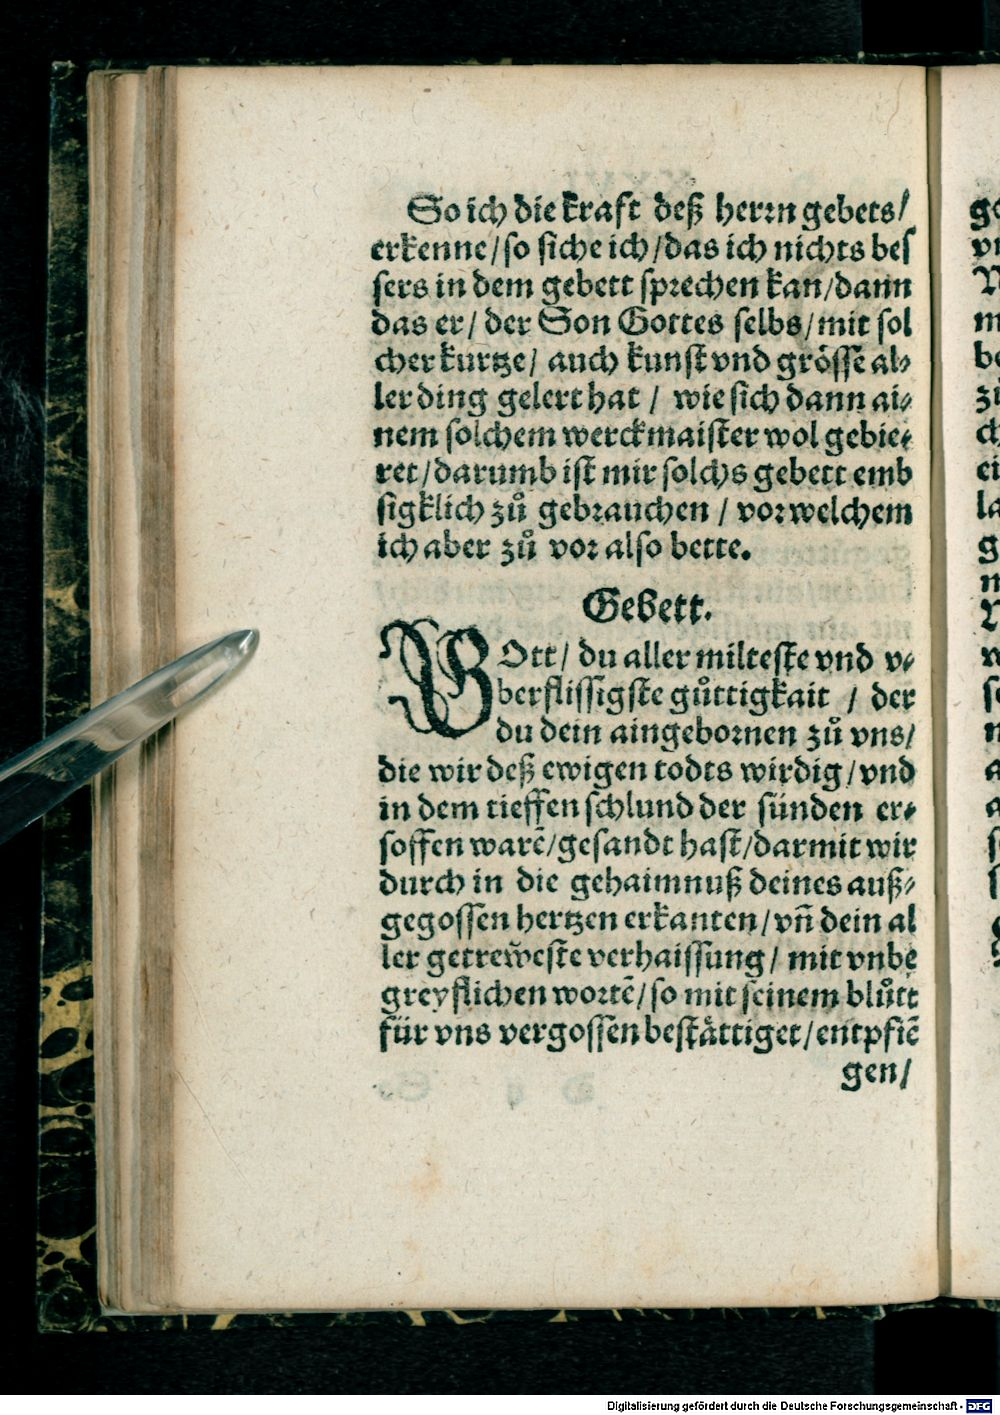 So ich die kraft deß herꝛn gebets/
erkenne/so siche ich/das ich nichts bes
sers in dem gebett spꝛechen kan/dann
das er/ der Son Gottes selbs/mit sol
cher kurtze/ auch kunst vnd grösse al⸗
ler ding gelert hat / wie sich dann ai⸗
nem solchem werckmaister wol gebie⸗
ret/darumb ist mir solchs gebett emb
sigklich zuͦ gebꝛauchen / voꝛ welchem
ich aber zuͦ voꝛ also bette.
Gebett.
GOtt/ du aller milteste vnd v⸗
berflissigste guͤttigkait / der
du dein aingeboꝛnen zuͦ vns/
die wir deß ewigen todts wirdig/vnd
in dem tieffen schlund der sünden er⸗
soffen warē/gesandt hast/darmit wir
durch in die gehaimnuß deines auß⸗
gegossen hertzen erkanten/vn̄ dein al
ler getreẅeste verhaissung/ mit vnbe
greyflichen woꝛtē/so mit seinem bluͦtt
für vns vergossen bestättiget/entpfiē
gen/
Digitalisierung gefördert durch die Deutsche Forschungsgemeinschaft - DFG